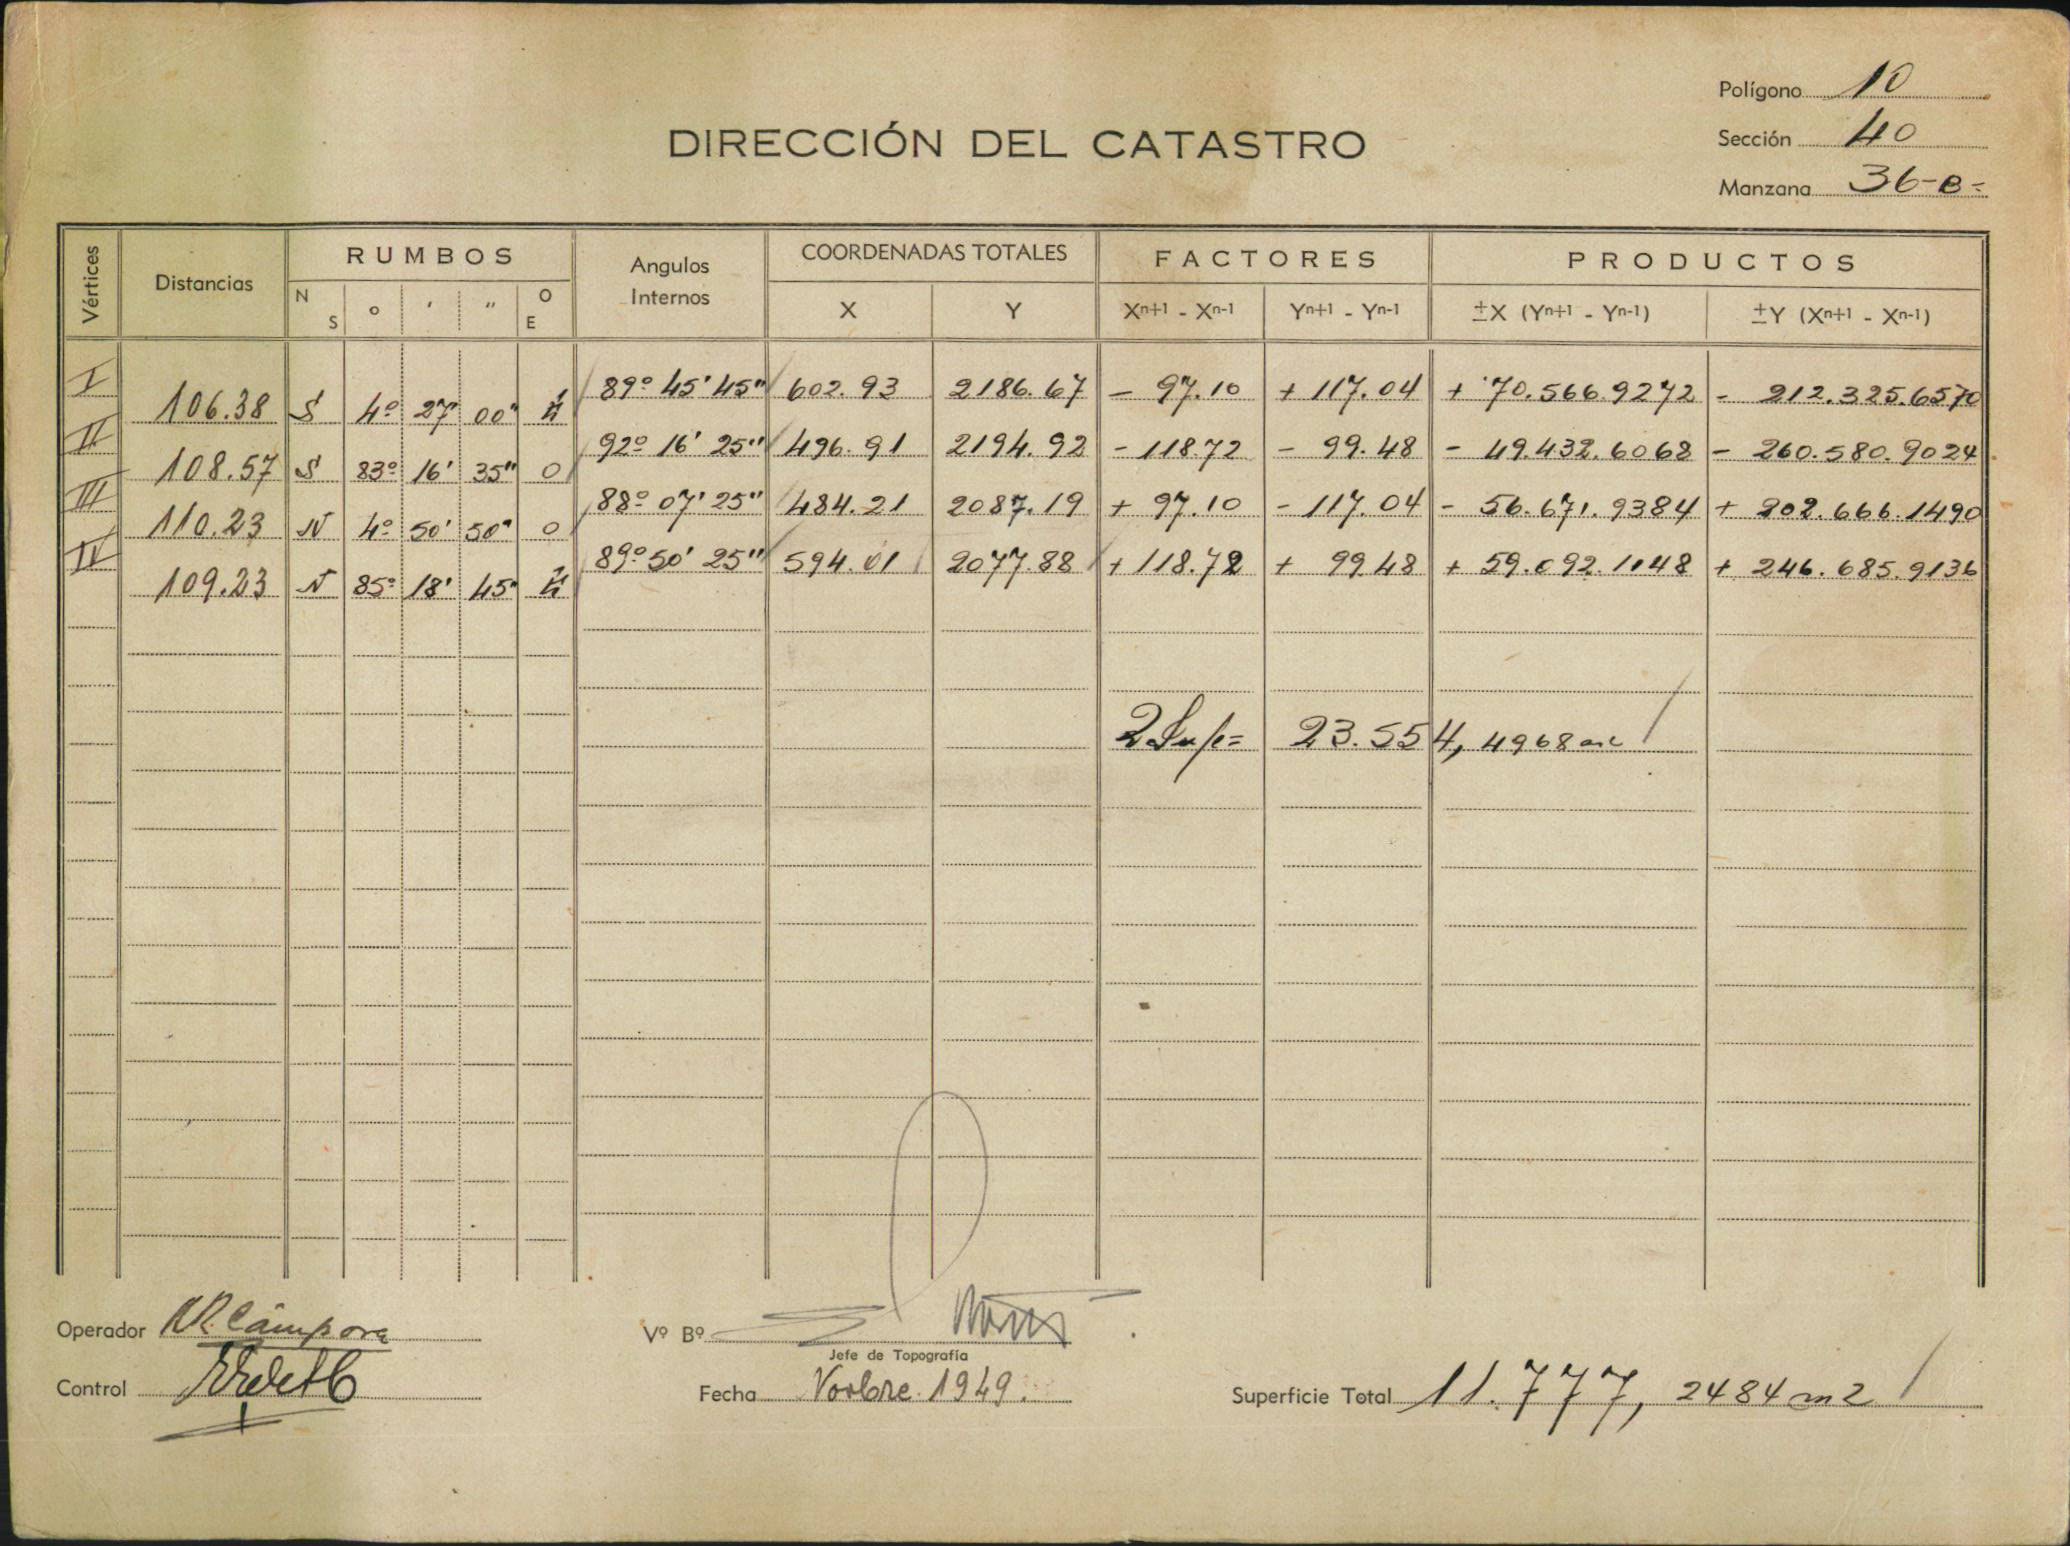 Polígono 10
DIRECCIÓN DEL CATASTRO
Sección 40
Manzana 36-B-
Vértices Distancias RUMBOS Angulos Internos COORDENADAS TOTALES FACTORES PRODUCTOS
N S o ' " O E X Y Xn+1 - Xn-1 Yn+1 - Yn-1 ±X (Yn+1 - Yn-1) ±Y (Xn+1 - Xn-1)
I 89º 45' 45" 602.93 2186.67 - 97.10 + 117.04 + 70.566.9272 - 212.325.6570
106.38 S 4º 27' 00"
II 92º 16' 25" 496.91 2194.92 - 118.72 - 99.48 - 49.432.6068 - 260.580.9024
108.57 S 83º 16' 35" O
III 88º 07' 25" 484.21 2087.19 + 97.10 - 117.04 - 56.671.9384 + 202.666.1490
110.23 N 4º 50' 50" O
IV 89º 50' 25" 594.01 2077.88 + 118.72 + 99.48 + 59.092.1148 + 246.685.9136
109.23 N 85º 18' 45"
2 Sup= 23.554,4968 m2
Operador Cámpora
Vº Bº
Jefe de Topografía
Control
Fecha Novbre 1949.
Superficie Total 11.777,2484 m2